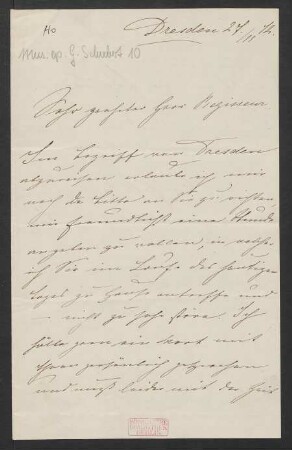 No
Mus. ep. G. Schubert 10
Dresden 27/11 72.
Sehr geehrter Herr Regisseur
Im Begriff von Dresden
abzureisen erlaube ich mir
noch die Bitte an Sie zu richten,
mir freundlichst eine Stunde
angeben zu wollen, in welcher
ich Sie im Laufe des heutigen
Tages zu Hause antreffe und
– nicht zu sehr störe. Ich
hätte gern ein Wort mit
Ihnen persönlich gesprochen
und muß leider mit der Zeit